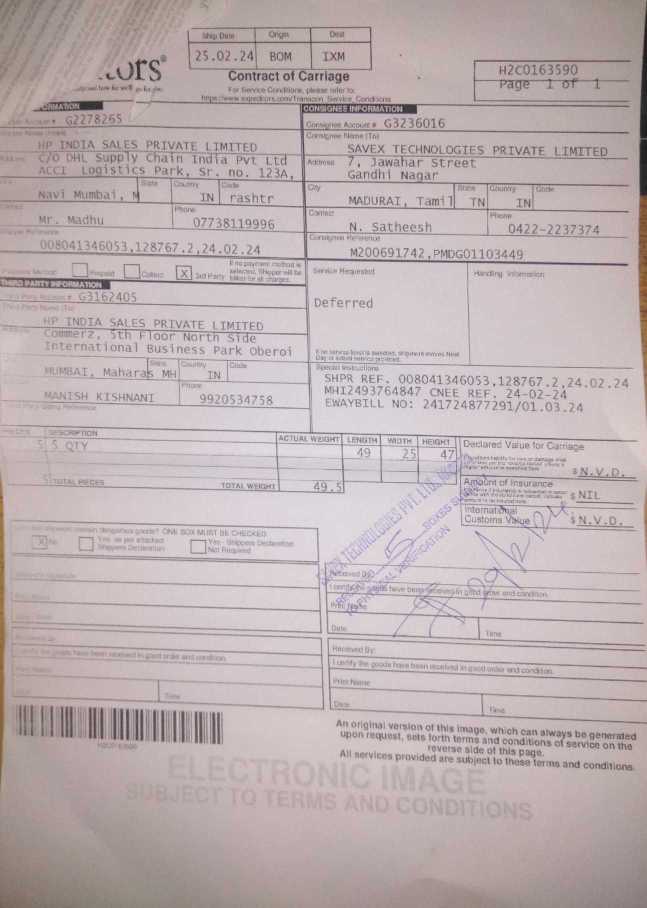 Ship Date Origin Dest
25.02.24 BOM IXM
Contract of Carriage
For Service Conditions, please refer to:
https://www.expeditors.com/Transcon_Service_Conditions
H2C0163590
Page 1 of 1
Account # G2278265
HP INDIA SALES PRIVATE LIMITED
C/O DHL Supply Chain India Pvt Ltd
ACCI Logistics Park, Sr. no. 123A,
State Country Code
Navi Mumbai, M IN rashtr
Phone
Mr. Madhu 07738119996
008041346053,128767.2,24.02.24
CONSIGNEE INFORMATION
Consignee Account # G3236016
Consignee Name (To)
SAVEX TECHNOLOGIES PRIVATE LIMITED
Address 7, Jawahar Street
Gandhi Nagar
City State Country Code
MADURAI, Tamil TN IN
Contact Phone
N. Satheesh 0422-2237374
Consignee Reference
M200691742,PMDG01103449
Prepaid Collect X 3rd Party
If no payment method is
selected, Shipper will be
billed for all charges.
THIRD PARTY INFORMATION
Third Party Account #. G3162405
Third Party Name
HP INDIA SALES PRIVATE LIMITED
Commerz, 5th Floor North Side
International Business Park Oberoi
State Country Code
MUMBAI, Maharas MH IN
Phone
MANISH KISHNANI 9920534758
Service Requested Handling Information
Deferred
Special Instructions
SHPR REF. 008041346053,128767.2,24.02.24
MHI2493764847 CNEE REF. 24-02-24
EWAYBILL NO: 241724877291/01.03.24
PIECES DESCRIPTION ACTUAL WEIGHT LENGTH WIDTH HEIGHT
5 5 QTY 49 25 47
5 TOTAL PIECES TOTAL WEIGHT 49.5
Declared Value for Carriage
$ N.V.D.
Amount of Insurance
$ NIL
International
Customs Value $ N.V.D.
contain dangerous goods? ONE BOX MUST BE CHECKED
X No Yes as per attached
Shippers Declaration
Yes - Shippers Declaration
Not Required
SAVEX TECHNOLOGIES PVT LTD
RECEIVED 5 BOXES
PHYSICAL VERIFICATION
29/2/24
Received By:
I certify the goods have been received in good order and condition.
Print Name
Date Time
I certify the goods have been received in good order and condition.
Time
Received By:
I certify the goods have been received in good order and condition.
Print Name
Date Time
An original version of this image, which can always be generated
upon request, sets forth terms and conditions of service on the
reverse side of this page.
All services provided are subject to these terms and conditions.
ELECTRONIC IMAGE
SUBJECT TO TERMS AND CONDITIONS